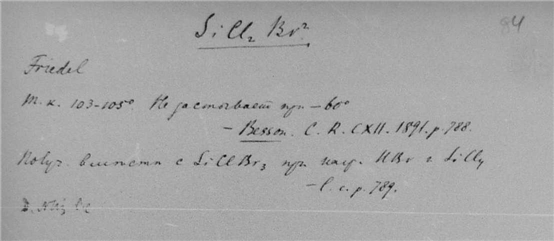 84
SiCl₂ Br²
Friedel
Т. к. 103-105°. Не застывает при -60°
- Besson. C. R. CXII. 1891. p. 788.
Получ. вместе с SiClBr₃ при наgr. HBr с SiCl₄
- l. c. p. 789.